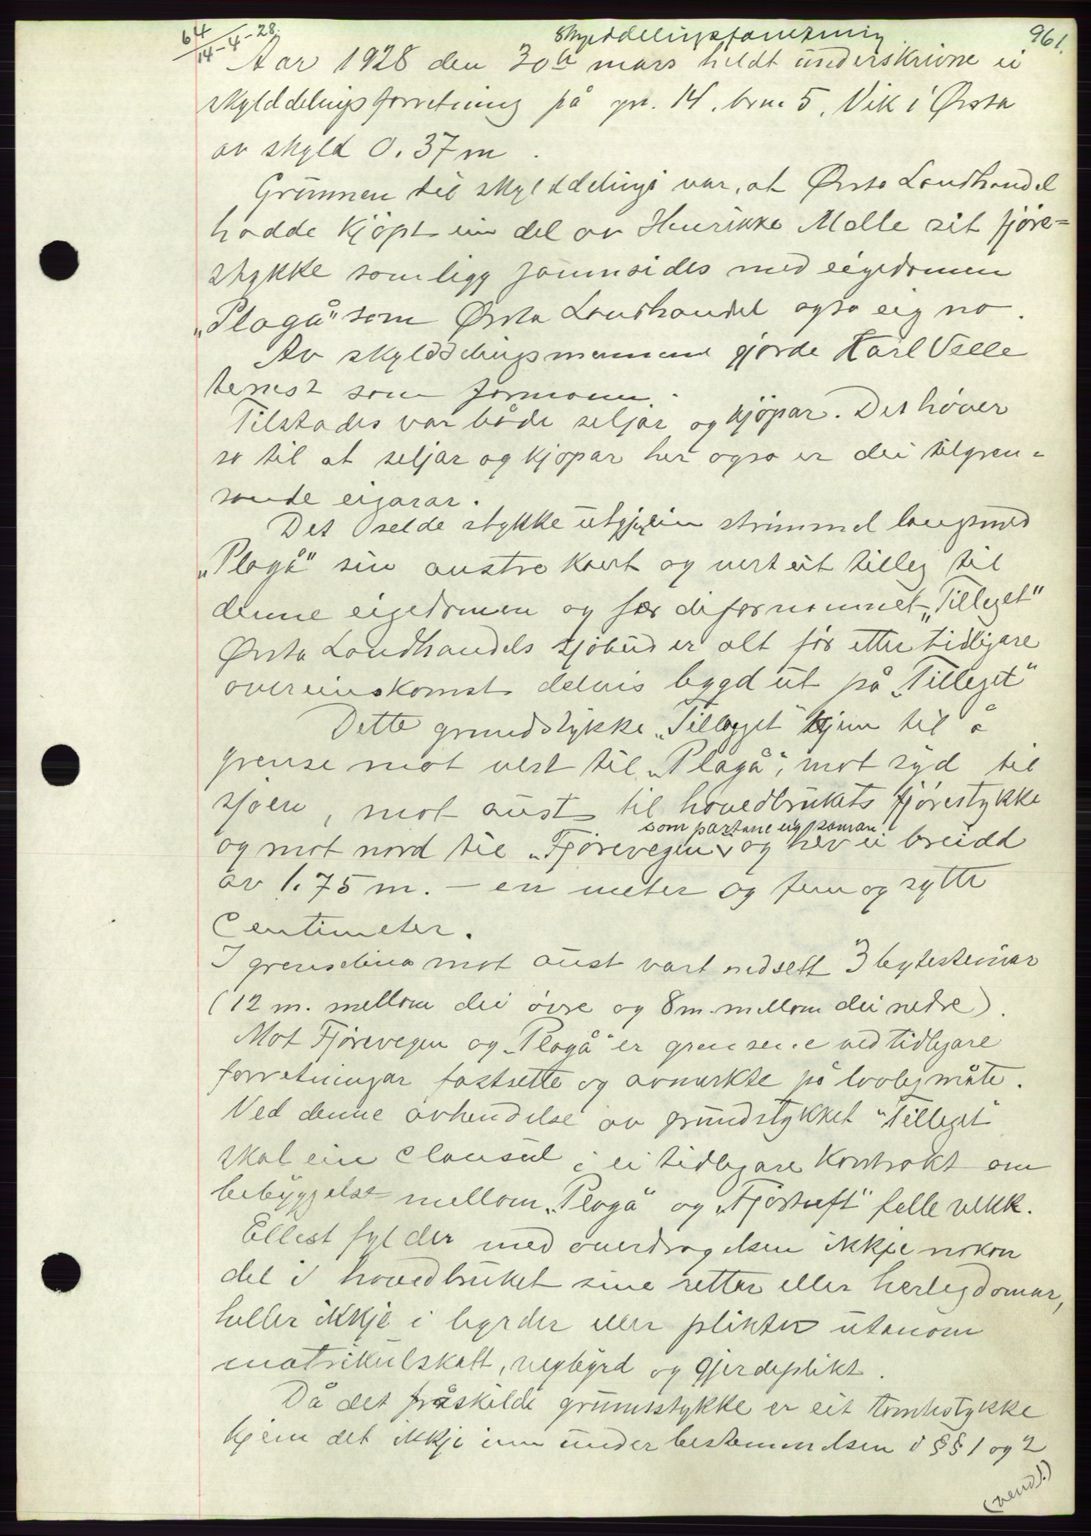 64
14-4-28.
Skylddelingsforretning
961.
Aar 1928 den 30te mars heldt underskrivne ei
skylddelingsforretning på gn. 14, brn. 5, Vik i Ørsta
av skyld 0.37 m.
Grunnen til skylddelingi var, at Ørsta Landhandel
hadde kjöpt ein del av Henrikke Melle sit fjöre=
stykke som ligg jamnsides med eigedomen
„Plagå" som Ørsta Landhandel ogso eig no.
Av skylddelingsmennene gjorde Karl Velle
tenest som formann.
Tilstades var både seljar og kjöpar. Det høver
so til at seljar og kjöpar her ogso er dei tilgren-
sande eigarar.
Det selde stykke utgjer ein strimmel langsmed
„Plagå" sin austre kant og vert eit tilleg til
denne eigedomen og fær difor namnet „Tilleget"
Ørsta Landhandels sjöbud er alt før etter tidligare
overeinskomst delvis bygd ut på „Tilleget"
Dette grundstykke „Tilleget" kjem til å
grense mot vest til „Plagå", mot syd til
sjøen, mot aust til hovedbrukets fjörestykke
som partane eig saman
og mot nord til „Fjörevegen" og hev ei breidd
av 1.75 m. – en meter og fem og sytti
Centimeter.
I grenselina mot aust vart nedsett 3 bytesteinar
(12 m. mellom dei övre og 8 m mellom dei nedre).
Mot Fjörevegen og „Plagå" er grensene ved tidlegare
forretningar fastsette og avmerkte på lovleg måte.
Ved denne avhendelse av grundstykket "Tilleget"
skal ein clausul i ei tidlegare Kontrakt om
bebyggelse mellom „Plagå" og „Fjörtuft" falle vekk.
Ellest fylder med overdragelsen ikkje nokon
del i hovedbruket sine rettar eller herlegdomar,
heller ikkje i byrder eller plikter utanom
matrikulskatt, vegbyrd og gjerdeplikt.
Då det fråskilde grunnstykke er eit tomtestykke
kjem det ikkje inn under bestemmelsen i §§ 1 og 2
(vend!)